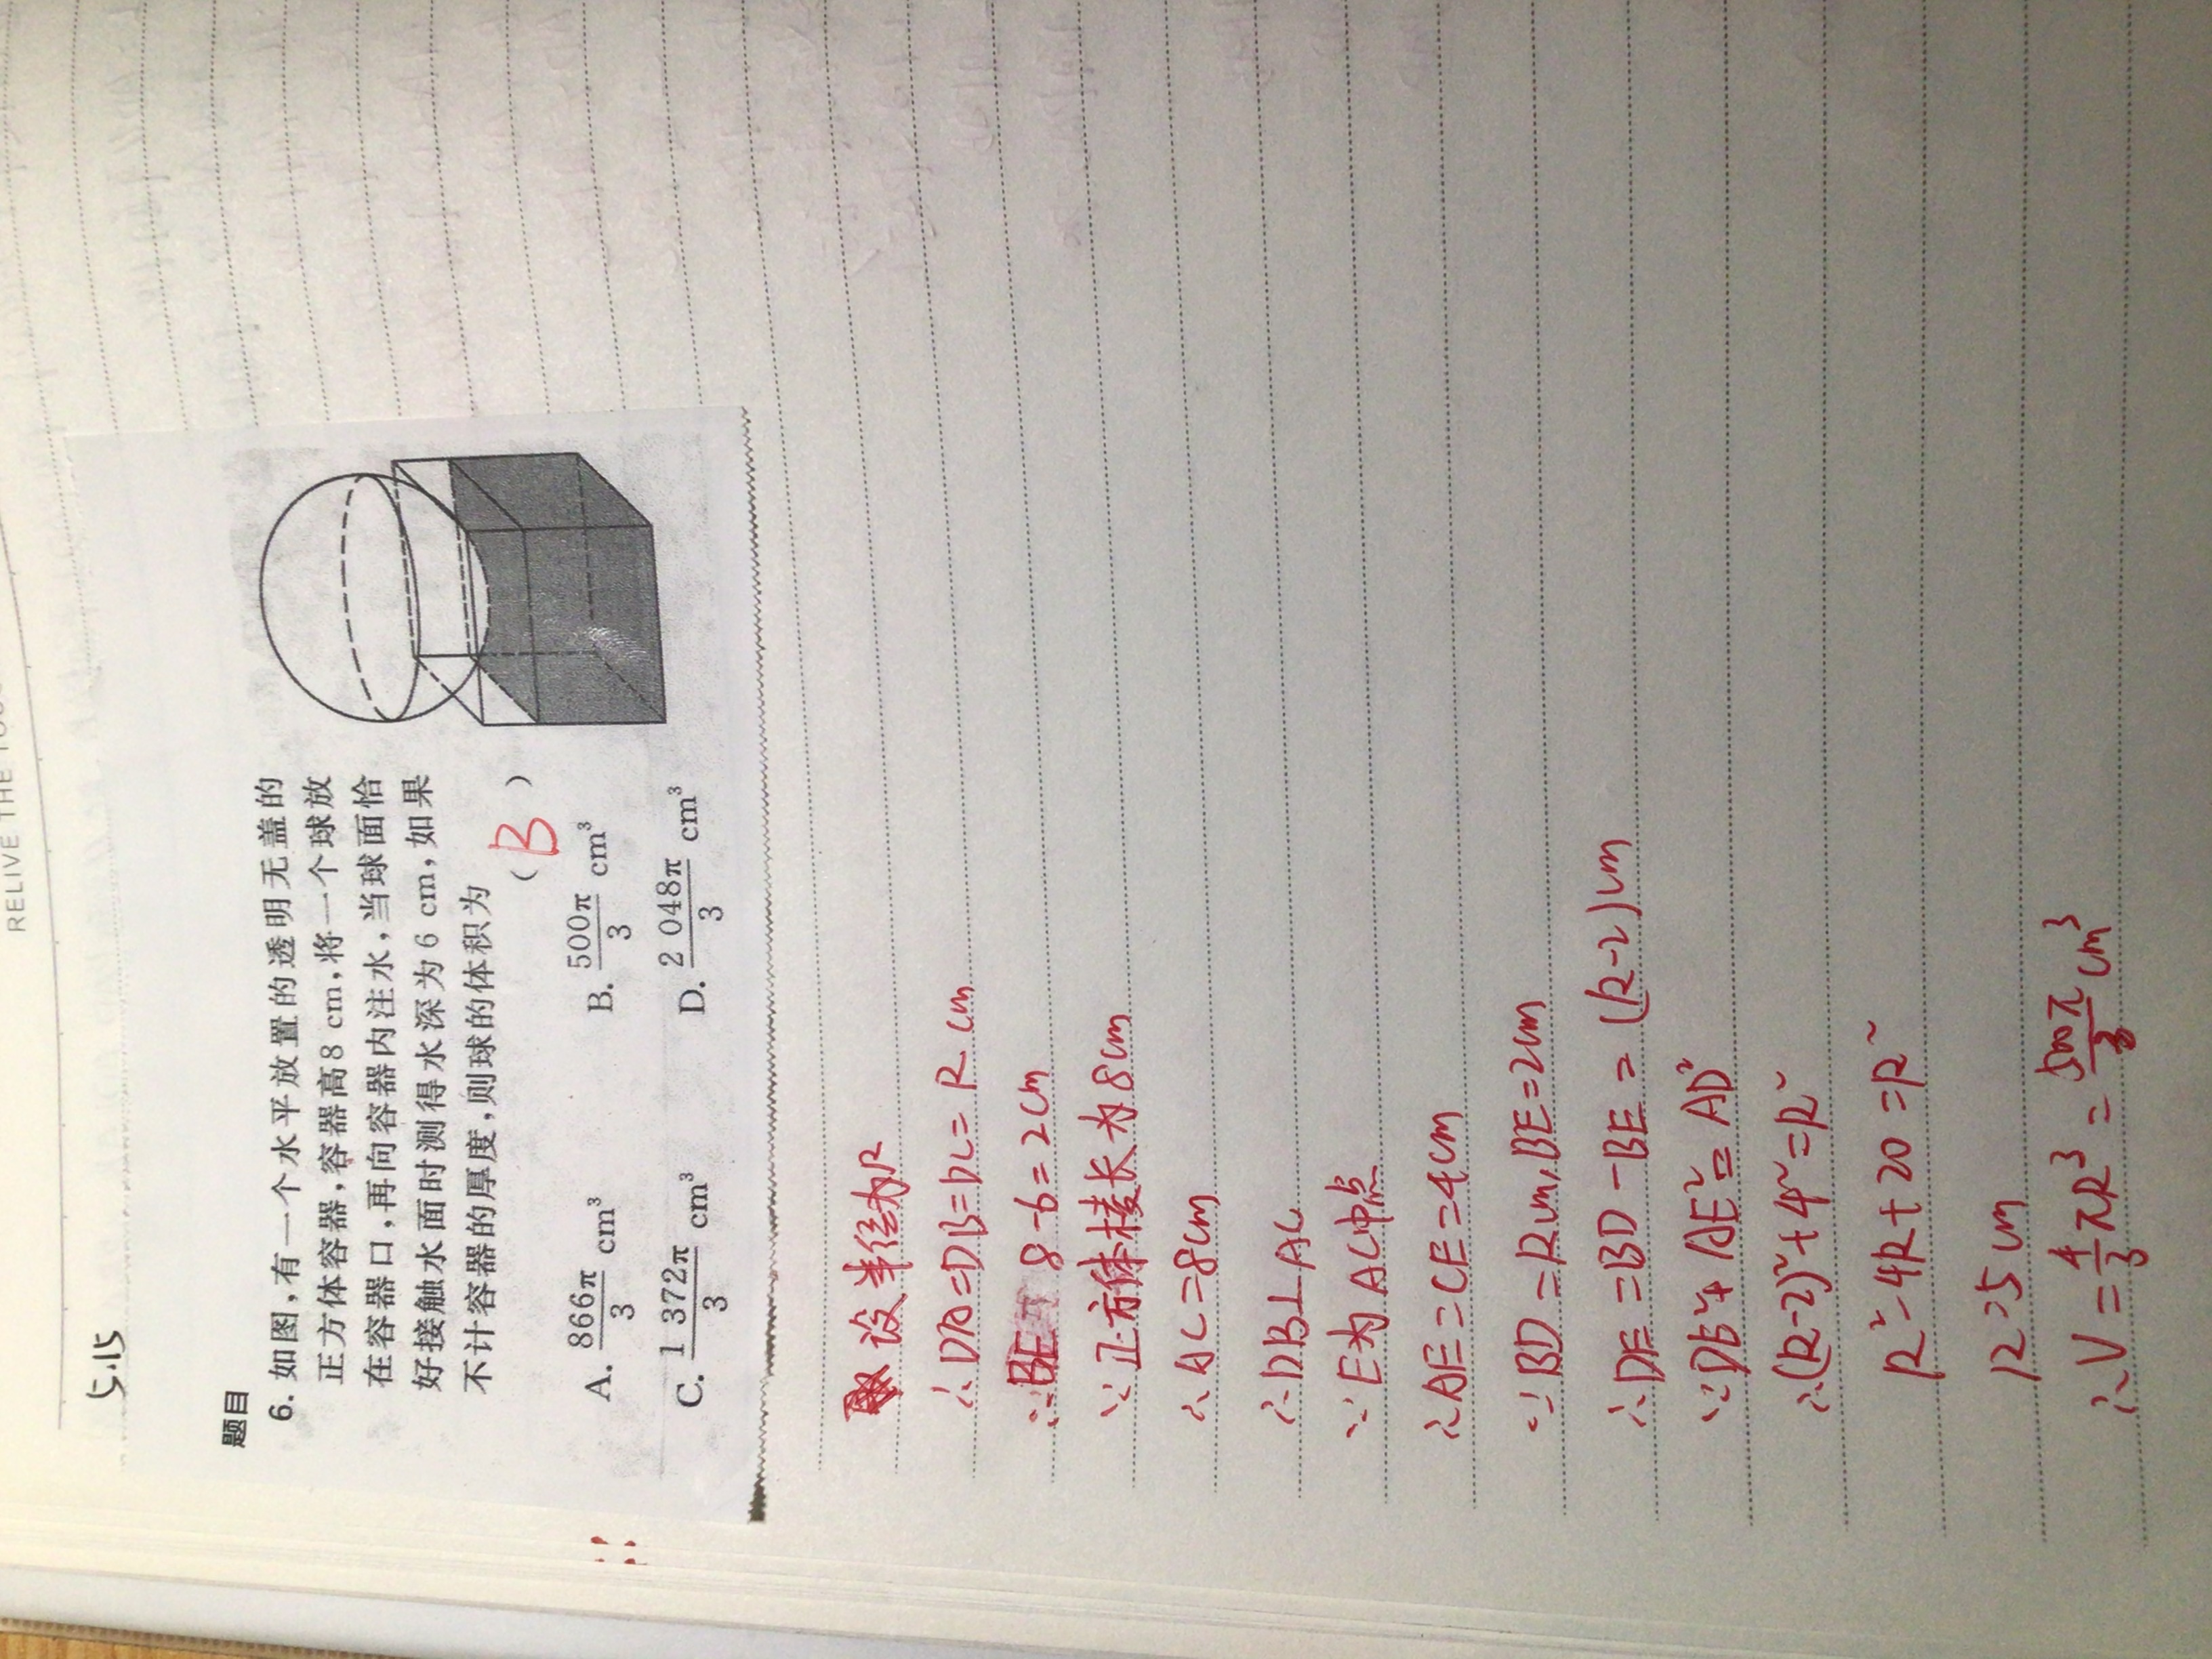 RELIVE THE
5.15
题目
6. 如图,有一个水平放置的透明无盖的
正方体容器,容器高8 cm,将一个球放
在容器口,再向容器内注水,当球面恰
好接触水面时测得水深为6 cm,如果
不计容器的厚度,则球的体积为
( B )
A. 866π/3 cm³ B. 500π/3 cm³
C. 1 372π/3 cm³ D. 2 048π/3 cm³
设半径为R
∴DA=DB=DC=R cm
∴BE= 8-6=2cm
∵正方体棱长为8cm
∴AC=8cm
∴DB⊥AC
∵E为AC中点
∴AE=CE=4cm
∵BD=Rcm,BE=2cm
∴DE=BD-BE=(R-2)cm
∵DE²+AE²=AD²
∴(R-2)²+4²=R²
R²-4R+20=R²
R=5cm
∴V=4/3πR³=500π/3 cm³